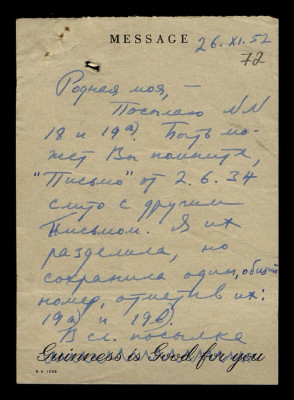 MESSAGE
26.XI.52
72
Родная моя, –
Посылаю NN
18 и 19а). Быть мо-
жет Вы помните,
"Письмо" от 2.6.34
слито с другим
письмом. Я их
разделила, но
сохранила один, общий
номер, отметив их:
19а) и 19в).
В сл. посылке
Guinness is Good for you